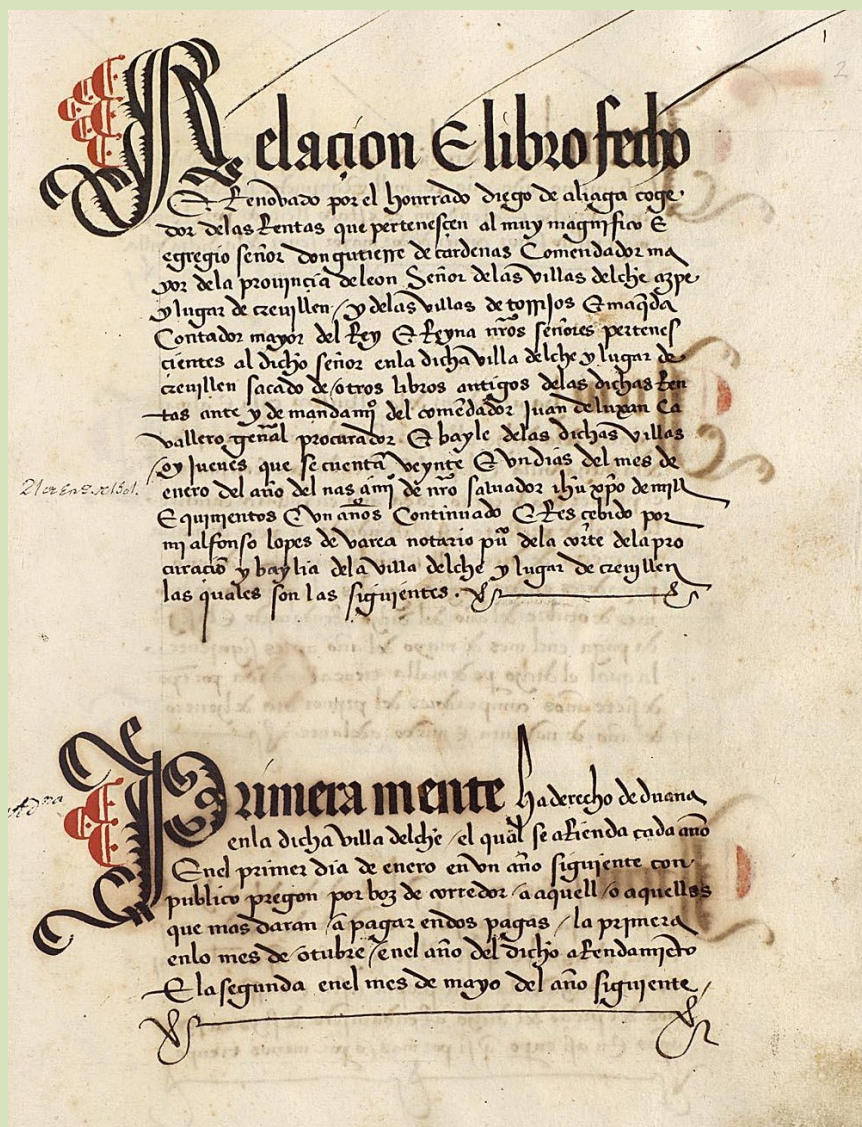 1
2
Relaçion E libro fecho
E Renovado por el honrrado diego de aliaga coge
dor delas Rentas que pertenesçen al muy magnifico E
egregio señor don gutierre de cardenas Comendador ma
yor dela provinçia de leon Señor delas villas delche aspe
y lugar de crevillen / y delas villas de torrijos E maq̃da
Contador mayor del Rey E Reyna nr̃os señores pertenes
çientes al dicho señor enla dicha villa delche y lugar de
crevillen sacado de otros libros antigos delas dichas Ren
tas ante y de mandamj̃º del comẽdador Juan de luxan Ca
vallero geñal procurador E bayle delas dichas villas
oy Jueves que se cuentã veynte E vn dias del mes de
21 de En.º de 1501.
enero del año del nasçimj̃º de nr̃o salvador ihũ xp̃o de mill
E quinientos E vn años Continuado E Resçebido por
mi alfonso lopes de varea notario pũ dela corte dela pro
curaciõ y baylia dela villa delche y lugar de crevillen
las quales son las siguientes.
Primera mente ha derecho de duana
enla dicha villa delche / el qual se aRienda cada año
Enel primer dia de enero en vn año siguiente con
publico pregon por boz de corredor / a aquell / o aquellos
que mas daran / a pagar en dos pagas / la primera
enlo mes de otubre / enel año del dicho aRendamiẽto
E la segunda enel mes de mayo del año siguiente /